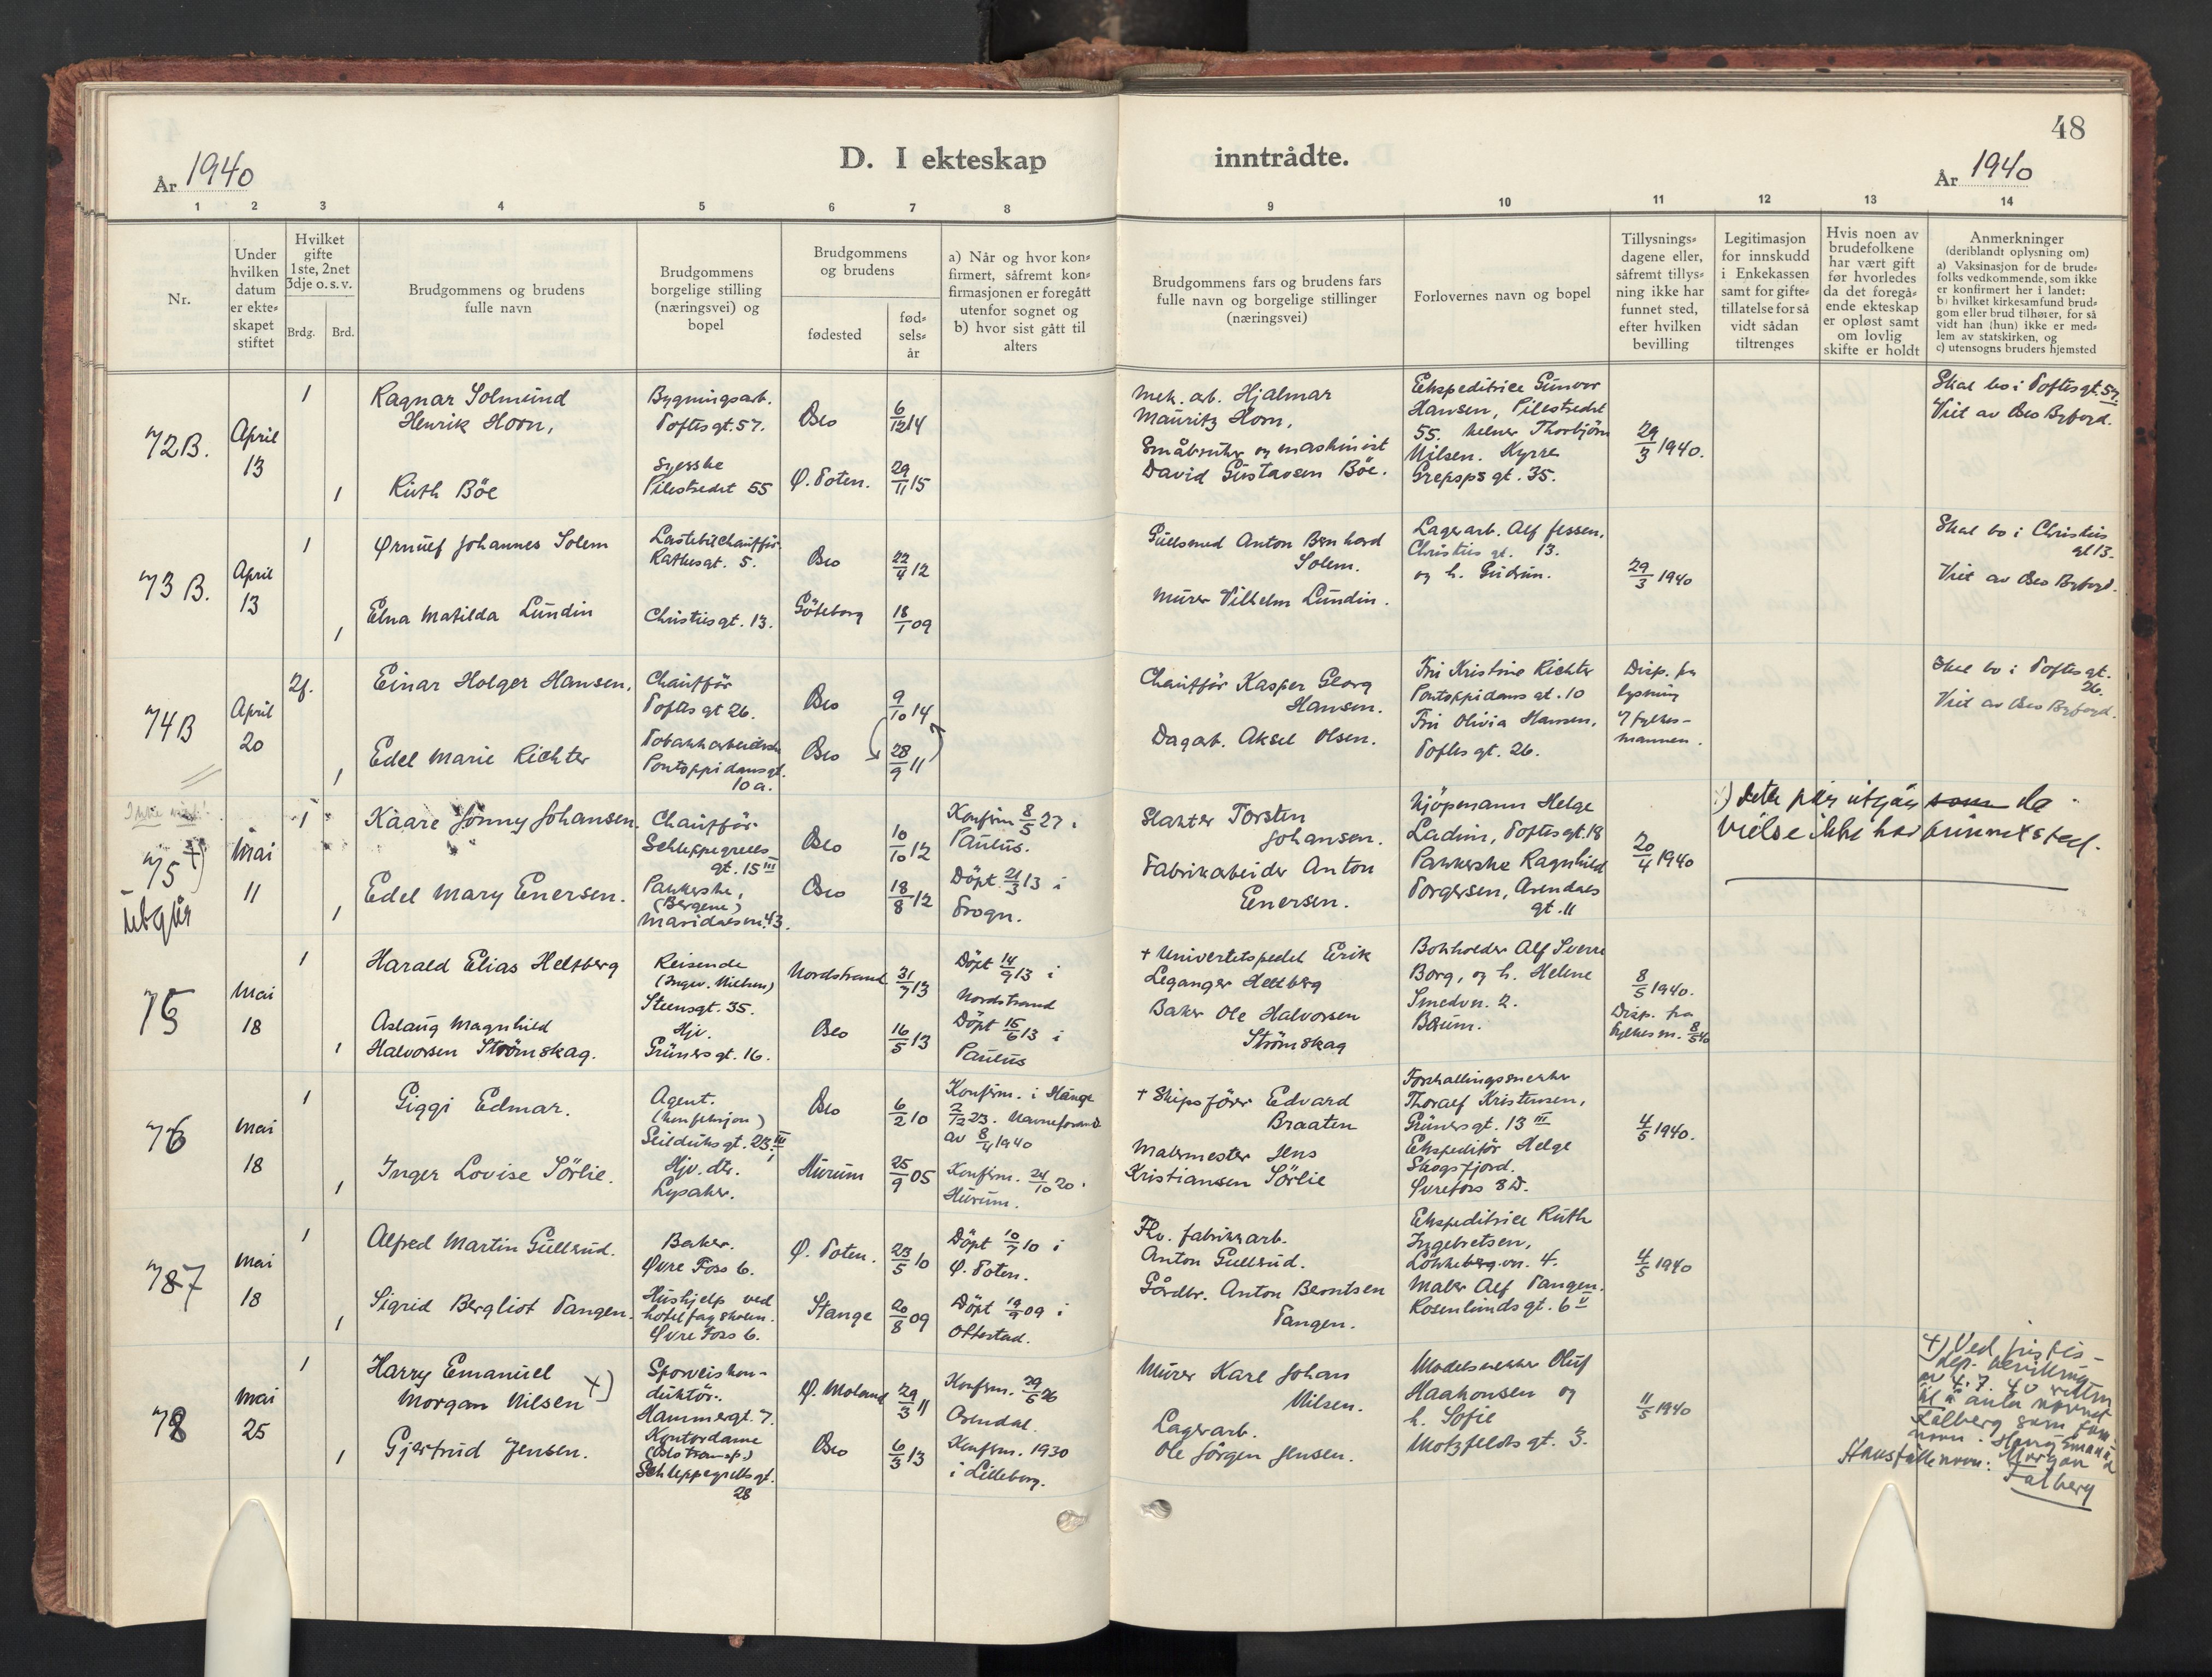 48
D. I ekteskap inntrådte.
År 1940
År 1940
1 2 3 4 5 6 7 8 9 10 11 12 13 14
Nr.
Under
hvilken
datum
er ekte-
skapet
stiftet
Hvilket
gifte
1ste, 2net
3dje o. s. v.
Brdg. Brd.
Brudgommens og brudens
fulle navn
Brudgommens
borgelige stilling
(næringsvei) og
bopel
Brudgommens
og brudens
fødested
fød-
sels-
år
a) Når og hvor kon-
firmert, såfremt kon-
firmasjonen er foregått
utenfor sognet og
b) hvor sist gått til
alters
Brudgommens fars og brudens fars
fulle navn og borgelige stillinger
(næringsvei)
Forlovernes navn og bopel
Tillysnings-
dagene eller,
såfremt tillys-
ning ikke har
funnet sted,
efter hvilken
bevilling
Legitimasjon
for innskudd
i Enkekassen
samt for gifte-
tillatelse for så
vidt sådan
tiltrenges
Hvis noen av
brudefolkene
har vært gift
før hvorledes
da det foregå-
ende ekteskap
er opløst samt
om lovlig
skifte er holdt
Anmerkninger
(deriblandt oplysning om)
a) Vaksinasjon for de brude-
folks vedkommende, som ikke
er konfirmert her i landet:
b) hvilket kirkesamfund brud-
gom eller brud tilhører, for så
vidt han (hun) ikke er med-
lem av statskirken, og
c) utensogns bruders hjemsted
72B.
April
13
1
Ragnar Solmund
Henrik Horn,
Bygningsarb.
Toftesgt. 57.
Oslo
6/12 14
1
Ruth Böe
Syerske
Pilestredet 55
Ø. Toten.
29/11 15
Mek. arb. Hjalmar
Mauritz Horn,
Småbruker og maskinist
David Gustavsen Böe.
Ekspeditrice Gunvor
Hansen, Pilestredet
55. Kelner Thorbjörn
Nilsen. Kyrre
Grepsgt. 35.
29/3 1940.
Skal bo i Toftesgt. 57.
Viet av Oslo Byfogd.
73 B.
April
13
1
Ørnulf Johannes Solem
Lastebilchaufför
Rathkesgt. 5.
Oslo
22/4 12
1
Elna Matilda Lundin
Christiesgt. 13.
Göteborg
18/1 09
Gullsmed Anton Bernhard
Solem.
Murer Vilhelm Lundin.
Lagerarb. Alf Jessen,
Christies gt. 13.
og h. Gudrun.
29/3 1940
Skal bo i Christies
gt 13.
Viet av Oslo Byfogd.
74B
April
20
2g.
Einar Holger Hansen,
Chaufför
Toftes gt 26.
Oslo
9/10 14
1
Edel Marie Richter
Tobakkarbeiderske
Pontoppidansgt.
10a.
Oslo
28/9 11
Chaufför Kasper Georg
Hansen.
Dagarb. Aksel Olsen.
Fru Kristine Richter
Pontoppidans gt. 10
Fru Olivia Hansen,
Toftes gt. 26.
Disp. fra
lysning
f fylkes-
mannen.
Skal bo i Toftes gt.
26.
Viet av Oslo Byfogd.
Ikke viet!
75 +)
utgår
Mai
11
1
Kaare Jonny Johansen.
Chaufför
Schleppegrells
gt. 15 III
Oslo
10/10 12
Konfirm 8/5 27 i
Paulus.
1
Edel Mary Enersen.
Pakkerske,
(Bergene)
Maridalsvn. 43.
Oslo
18/8 12
Döpt 21/3 13 i
Frogn.
Slakter Torsten
Johansen.
Fabrikarbeider Anton
Enersen.
Kjöpmann Helge
Ladim, Toftesgt. 18
Pakkerske Ragnhild
Torgersen, Arendals
gt. 11
20/4 1940
+) dette par utgår som da
vielse ikke har funnet sted.
75
Mai
18
1
Harald Elias Heltberg
Reisende
(Ingv. Nielsen)
Steensgt. 35.
Nordstrand
31/7 13
Döpt 14/9 13 i
Nordstrand
1
Aslaug Magnhild
Halvorsen Strömskag.
Hjv.
Grünersgt. 16.
Oslo
16/5 13
Döpt 15/6 13 i
Paulus
+ Universitetspedel Erik
Leganger Heltberg
Baker Ole Halvorsen
Strömskag
Bokholder Alf Sverre
Borg, og h. Helene
Smedvn. 2.
Bærum.
8/5 1940.
Disp. fra
fylkesm. 8/5 40
76
Mai
18
1
Giggi Edmar.
Agent.
(konfeksjon)
Seilduksgt. 23. III
Oslo
6/2 10
Konfirm. i Stange
2/12 23. Navneforand.
av 8/4 1940
1
Inger Lovise Sörlie.
Hjv. dtr.
Lysaker.
Hurum
25/9 05
Konfirm. 24/10 20 i
Hurum.
+ Skipsförer Edvard
Braaten
Malermester Jens
Kristiansen Sörlie
Forskallingssnekker
Thoralf Kristensen,
Grünersgt. 13 III
Ekspeditör Helge
Skogsfjord.
Øvrefoss 8 D.
4/5 1940.
787
Mai
18
1
Alfred Martin Gullerud.
Baker.
Øvre Foss 6.
Ø. Toten.
23/5 10
Döpt 10/7 10 i
Ø. Toten.
1
Sigrid Bergliot Tangen.
Hushjelp ved
hotelfagskolen.
Øvre Foss 6.
Stange
20/8 09
Döpt 19/9 09 i
Ottestad.
Flv. fabrikkarb.
Anton Gullerud.
Gårdbr. Anton Berntsen
Tangen.
Ekspeditrice Ruth
Ingebretsen,
Lökkeberg.vn. 4.
Maler Alf Tangen.
Rosenlundsgt. 6 II
4/5 1940
78
Mai
25
1
Harry Emanuel
Morgan Nilsen +)
Sporveiskon-
duktör.
Hammergt. 7.
Ø. Moland
29/3 11
Konfirm. 29/5 26
Arendal.
1
Gjertrud Jensen.
Kontordame
(Oslo transp.)
Schleppegrellsgt.
28
Oslo
6/3 13
Konfirm. 1930
i Lilleborg.
Murer Karl Johan
Nilsen.
Lagerarb.
Ole Jörgen Jensen.
Modellsnekker Oluf
Haakonsen og
h. Sofie
Motzfeldts gt. 3.
11/5 1940
+) Ved justis-
dep. bevilling
av 4. 7. 40 retten
til å anta navnet
Falberg som fam.
navn. Harry Emanuel
Hans fulle navn: Morgan
Falberg